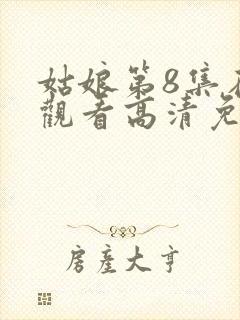 姑娘第8集在
觀看高清免
房產大亨